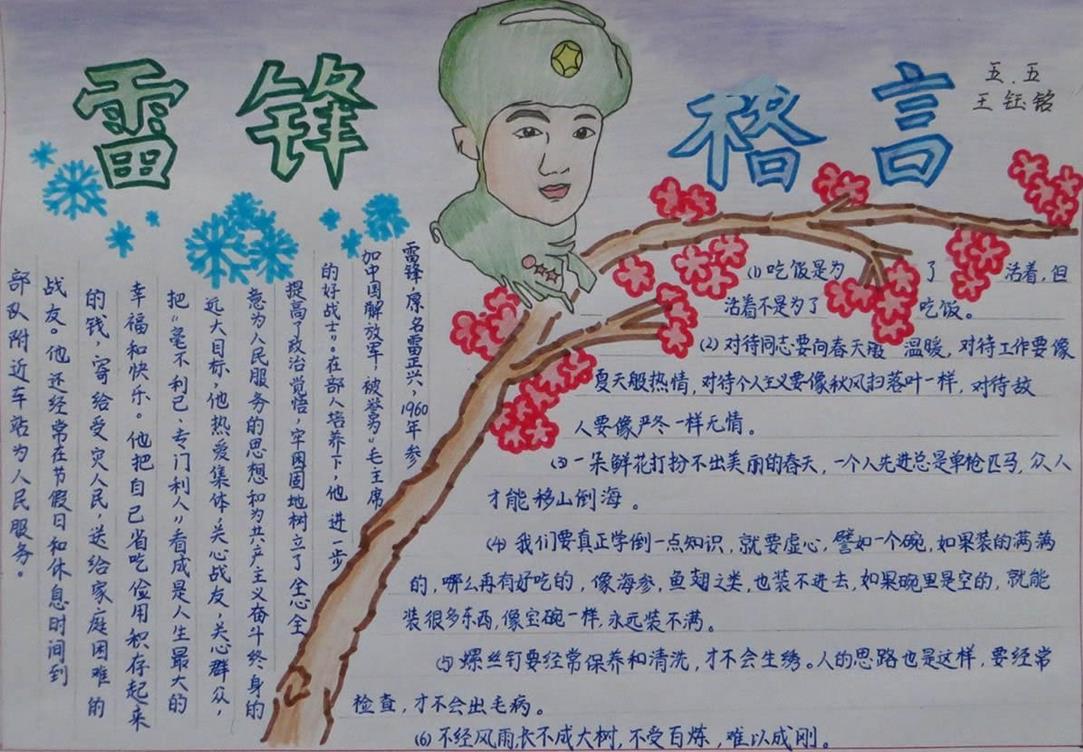 雷锋
楷言
五.五
王钰铭
雷锋,原名雷正兴,1960年参
加中国解放军,被誉为“毛主席
的好战士”。在部人培养下,他进一步
提高了政治觉悟,牢固固地树立了全心全
意为人民服务的思想和为共产主义奋斗终身的
远大目标,他热爱集体,关心战友,关心群众,
把“毫不利己、专门利人”看成是人生最大的
幸福和快乐。他把自己省吃俭用积存起来
的钱,寄给受灾人民,送给家庭困难的
战友。他还经常在节假日和休息时间到
部队附近车站为人民服务。
(1)吃饭是为了活着,但
活着不是为了吃饭。
(2)对待同志要向春天般温暖,对待工作要像
夏天般热情,对待个人主义要像秋风扫落叶一样,对待敌
人要像严冬一样无情。
(3)一朵鲜花打扮不出美丽的春天,一个人先进总是单枪匹马,众人
才能移山倒海。
(4)我们要真正学倒一点知识,就要虚心,譬如一个碗,如果装的满满
的,哪么再有好吃的,像海参,鱼翅之类,也装不进去,如果碗里是空的,就能
装很多东西,像宝碗一样,永远装不满。
(5)螺丝钉要经常保养和清洗,才不会生绣。人的思路也是这样,要经常
检查,才不会出毛病。
(6)不经风雨,长不成大树,不受百炼,难以成刚。